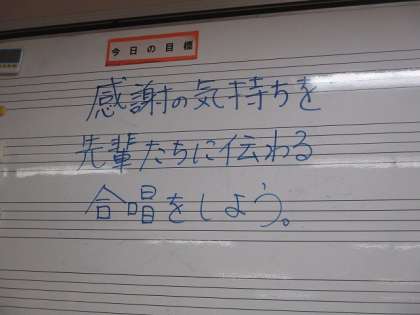 今日の目標
感謝の気持ちを
先輩たちに伝わる
合唱をしよう。